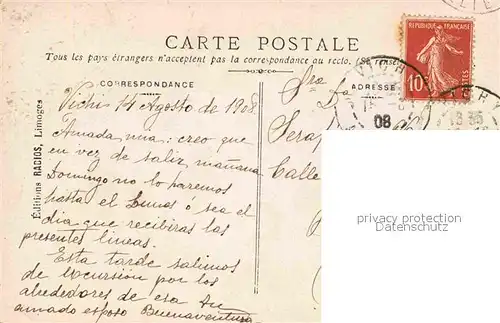 CARTE POSTALE
Tous les pays étrangers n'acceptent pas la correspondance au recto. (Se rense
CORRESPONDANCE
ADRESSE
RÉPUBLIQUE FRANÇAISE
10
POSTES
VICHY
08
Éditions RACIOS, Limoges
Vichi 14 Agosto de 1908
Amada mia: creo que
en vez de salir mañana
Domingo no lo haremos
hasta el Lunes ó sea el
dia que recibiras las
presentes lineas.
Esta tarde salimos
de excursión por los
alrededores de esa tu
amado esposo Buenaventura
Sra
Da
Serap
Calle
privacy protection
Datenschutz